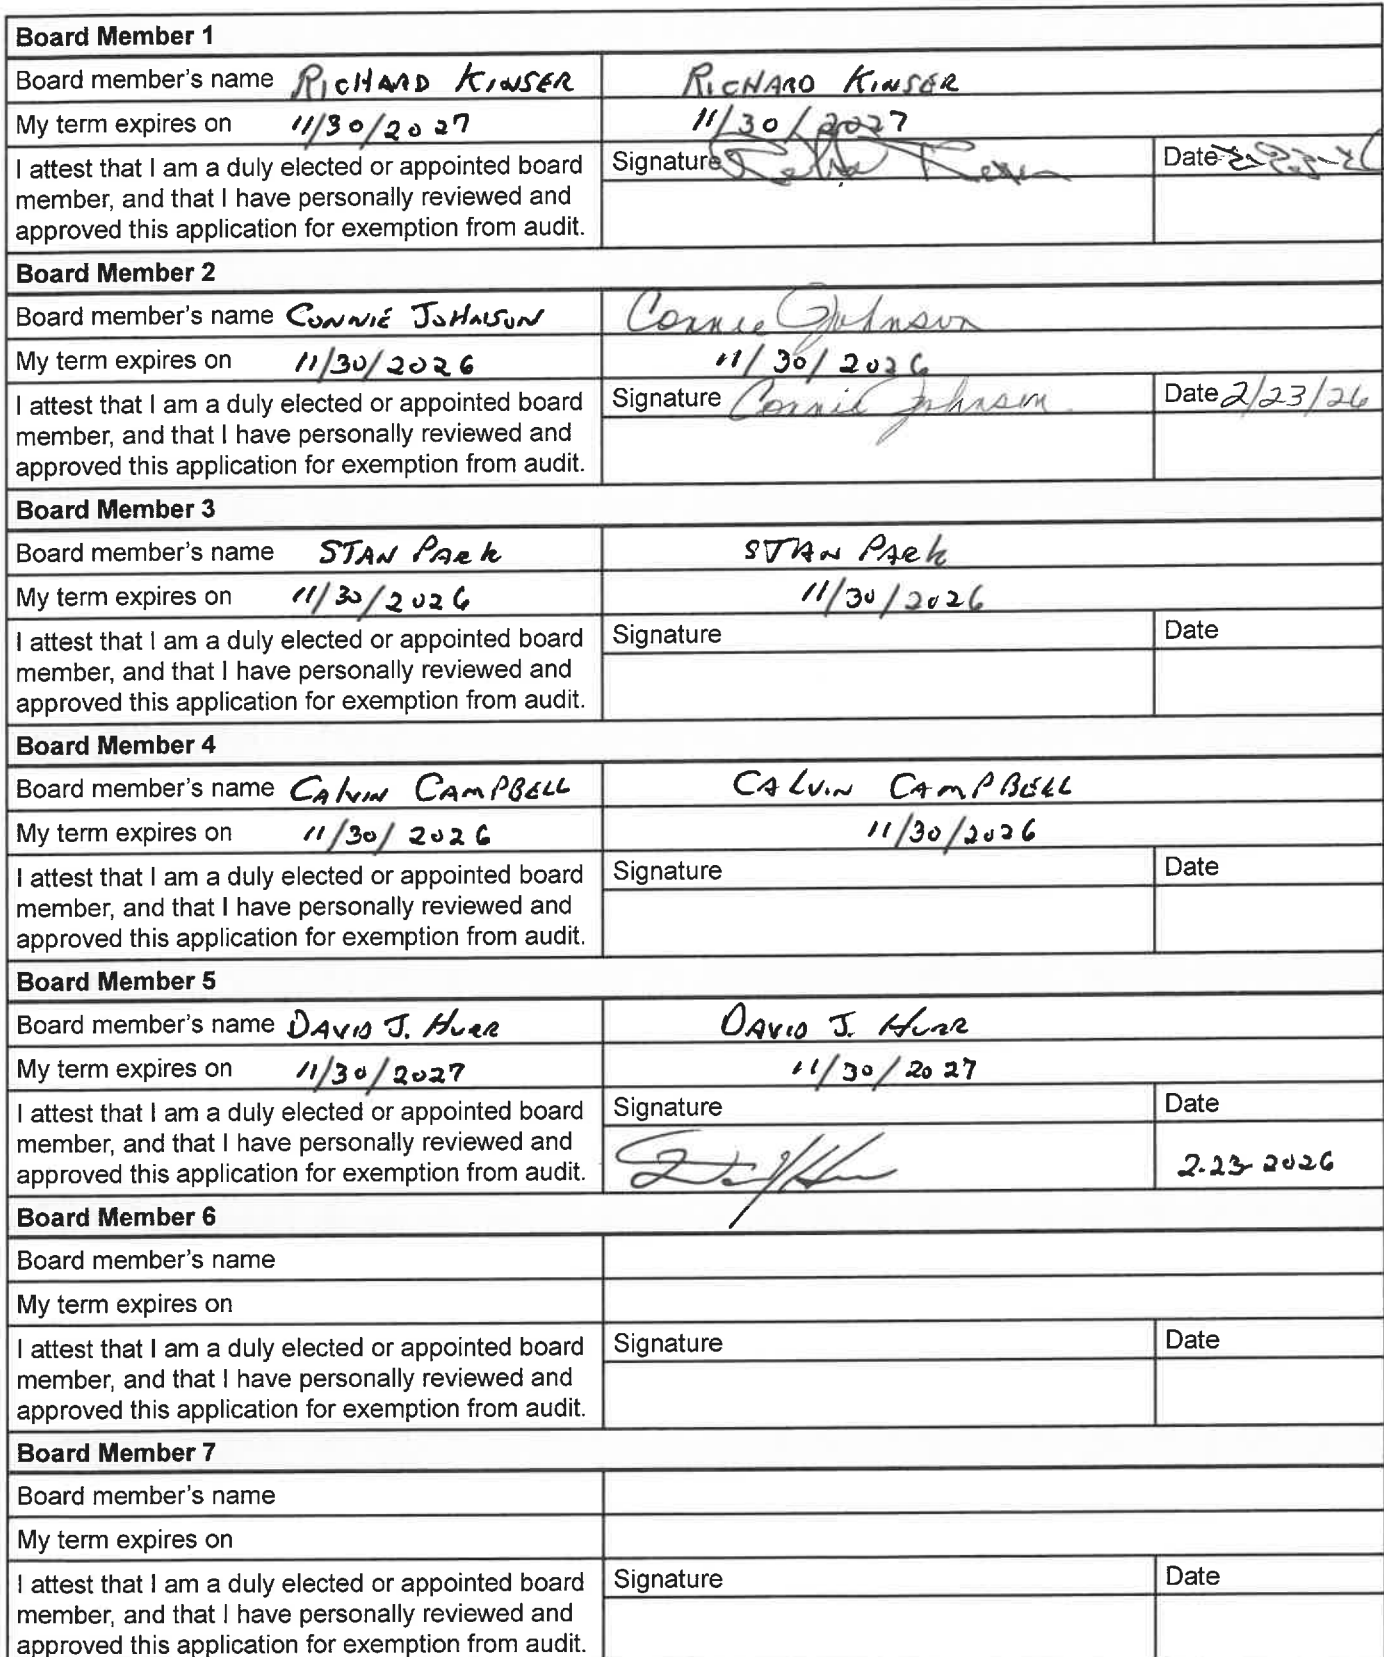 Board Member 1
Board member's name RICHARD KINSER RICHARD KINSER
My term expires on 11/30/2027 11/30/2027
I attest that I am a duly elected or appointed board Signature Date 2-23-26
member, and that I have personally reviewed and
approved this application for exemption from audit.
Board Member 2
Board member's name CONNIE JOHNSON Connie Johnson
My term expires on 11/30/2026 11/30/2026
I attest that I am a duly elected or appointed board Signature Connie Johnson Date 2/23/26
member, and that I have personally reviewed and
approved this application for exemption from audit.
Board Member 3
Board member's name STAN PARK STAN PARK
My term expires on 11/30/2026 11/30/2026
I attest that I am a duly elected or appointed board Signature Date
member, and that I have personally reviewed and
approved this application for exemption from audit.
Board Member 4
Board member's name CALVIN CAMPBELL CALVIN CAMPBELL
My term expires on 11/30/2026 11/30/2026
I attest that I am a duly elected or appointed board Signature Date
member, and that I have personally reviewed and
approved this application for exemption from audit.
Board Member 5
Board member's name DAVID J. HURR DAVID J. HURR
My term expires on 11/30/2027 11/30/2027
I attest that I am a duly elected or appointed board Signature Date
member, and that I have personally reviewed and
approved this application for exemption from audit. 2-23-2026
Board Member 6
Board member's name
My term expires on
I attest that I am a duly elected or appointed board Signature Date
member, and that I have personally reviewed and
approved this application for exemption from audit.
Board Member 7
Board member's name
My term expires on
I attest that I am a duly elected or appointed board Signature Date
member, and that I have personally reviewed and
approved this application for exemption from audit.